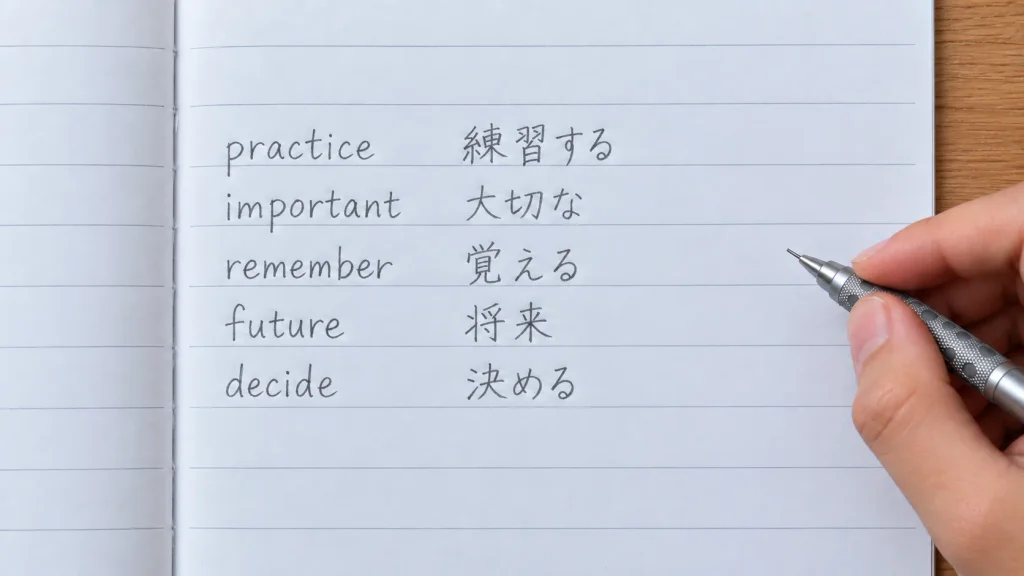 practice 練習する
important 大切な
remember 覚える
future 将来
decide 決める